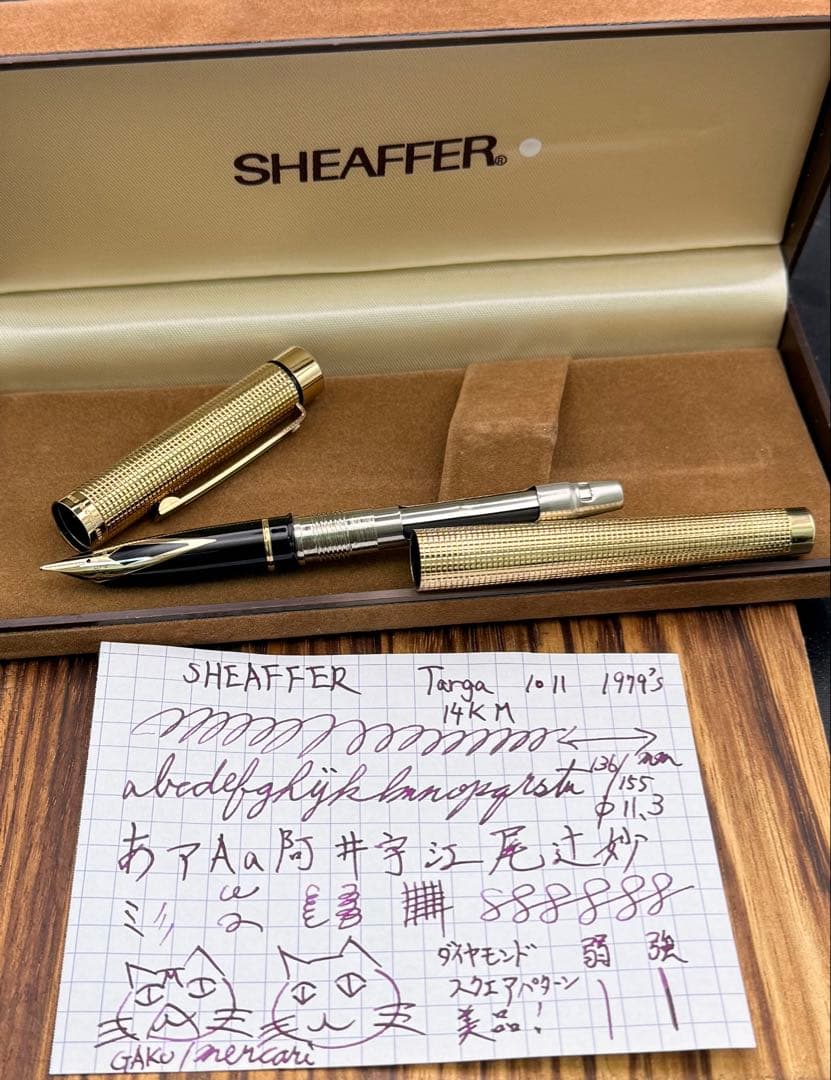 SHEAFFER®
SHEAFFER Targa 1011 1979's
14K M
abcdefghijklmnopqrstu 136/ mm
/155
φ11.3
あアAa阿井宇江尾辻妙
ダイヤモンド 弱 強
スクエアパターン
美品!
GAKU/mercari